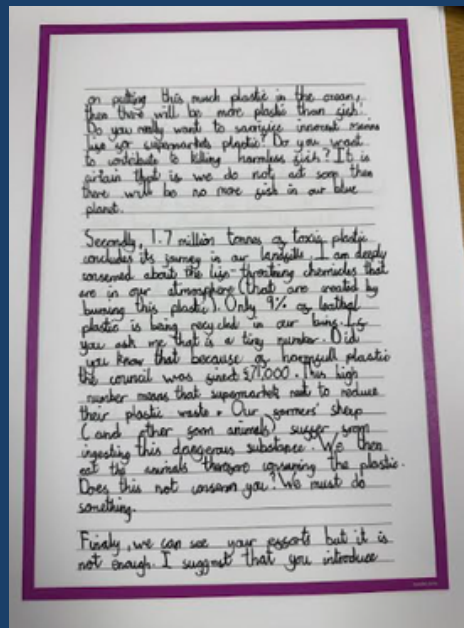 on putting this much plastic in the ocean,
then there will be more plastic than fish!
Do you really want to sacrifice innocent marine
life for supermarkets plastic? Do you want
to contribute to killing harmless fish? It is
certain that is we do not act soon then
there will be no more fish in our blue
planet.
Secondly, 1.7 million tonnes of toxic plastic
concludes its journey in our landfills. I am deeply
conserned about the life-threatning chemicles that
are in our atmosphere (that are created by
burning this plastic). Only 9% of leathal
plastic is being recycled in our bins. If
you ask me that is a tiny number. Did
you know that because of harmfull plastic
the council was fined £71,000. This high
number means that supermarkets need to reduce
their plastic waste. Our farmers' sheep
(and other farm animals) suffer from
ingesting this dangerous substance. We then
eat the animals therefore consuming the plastic.
Does this not consern you? We must do
something.
Finaly, we can see your efforts but it is
not enough. I suggest that you introduce